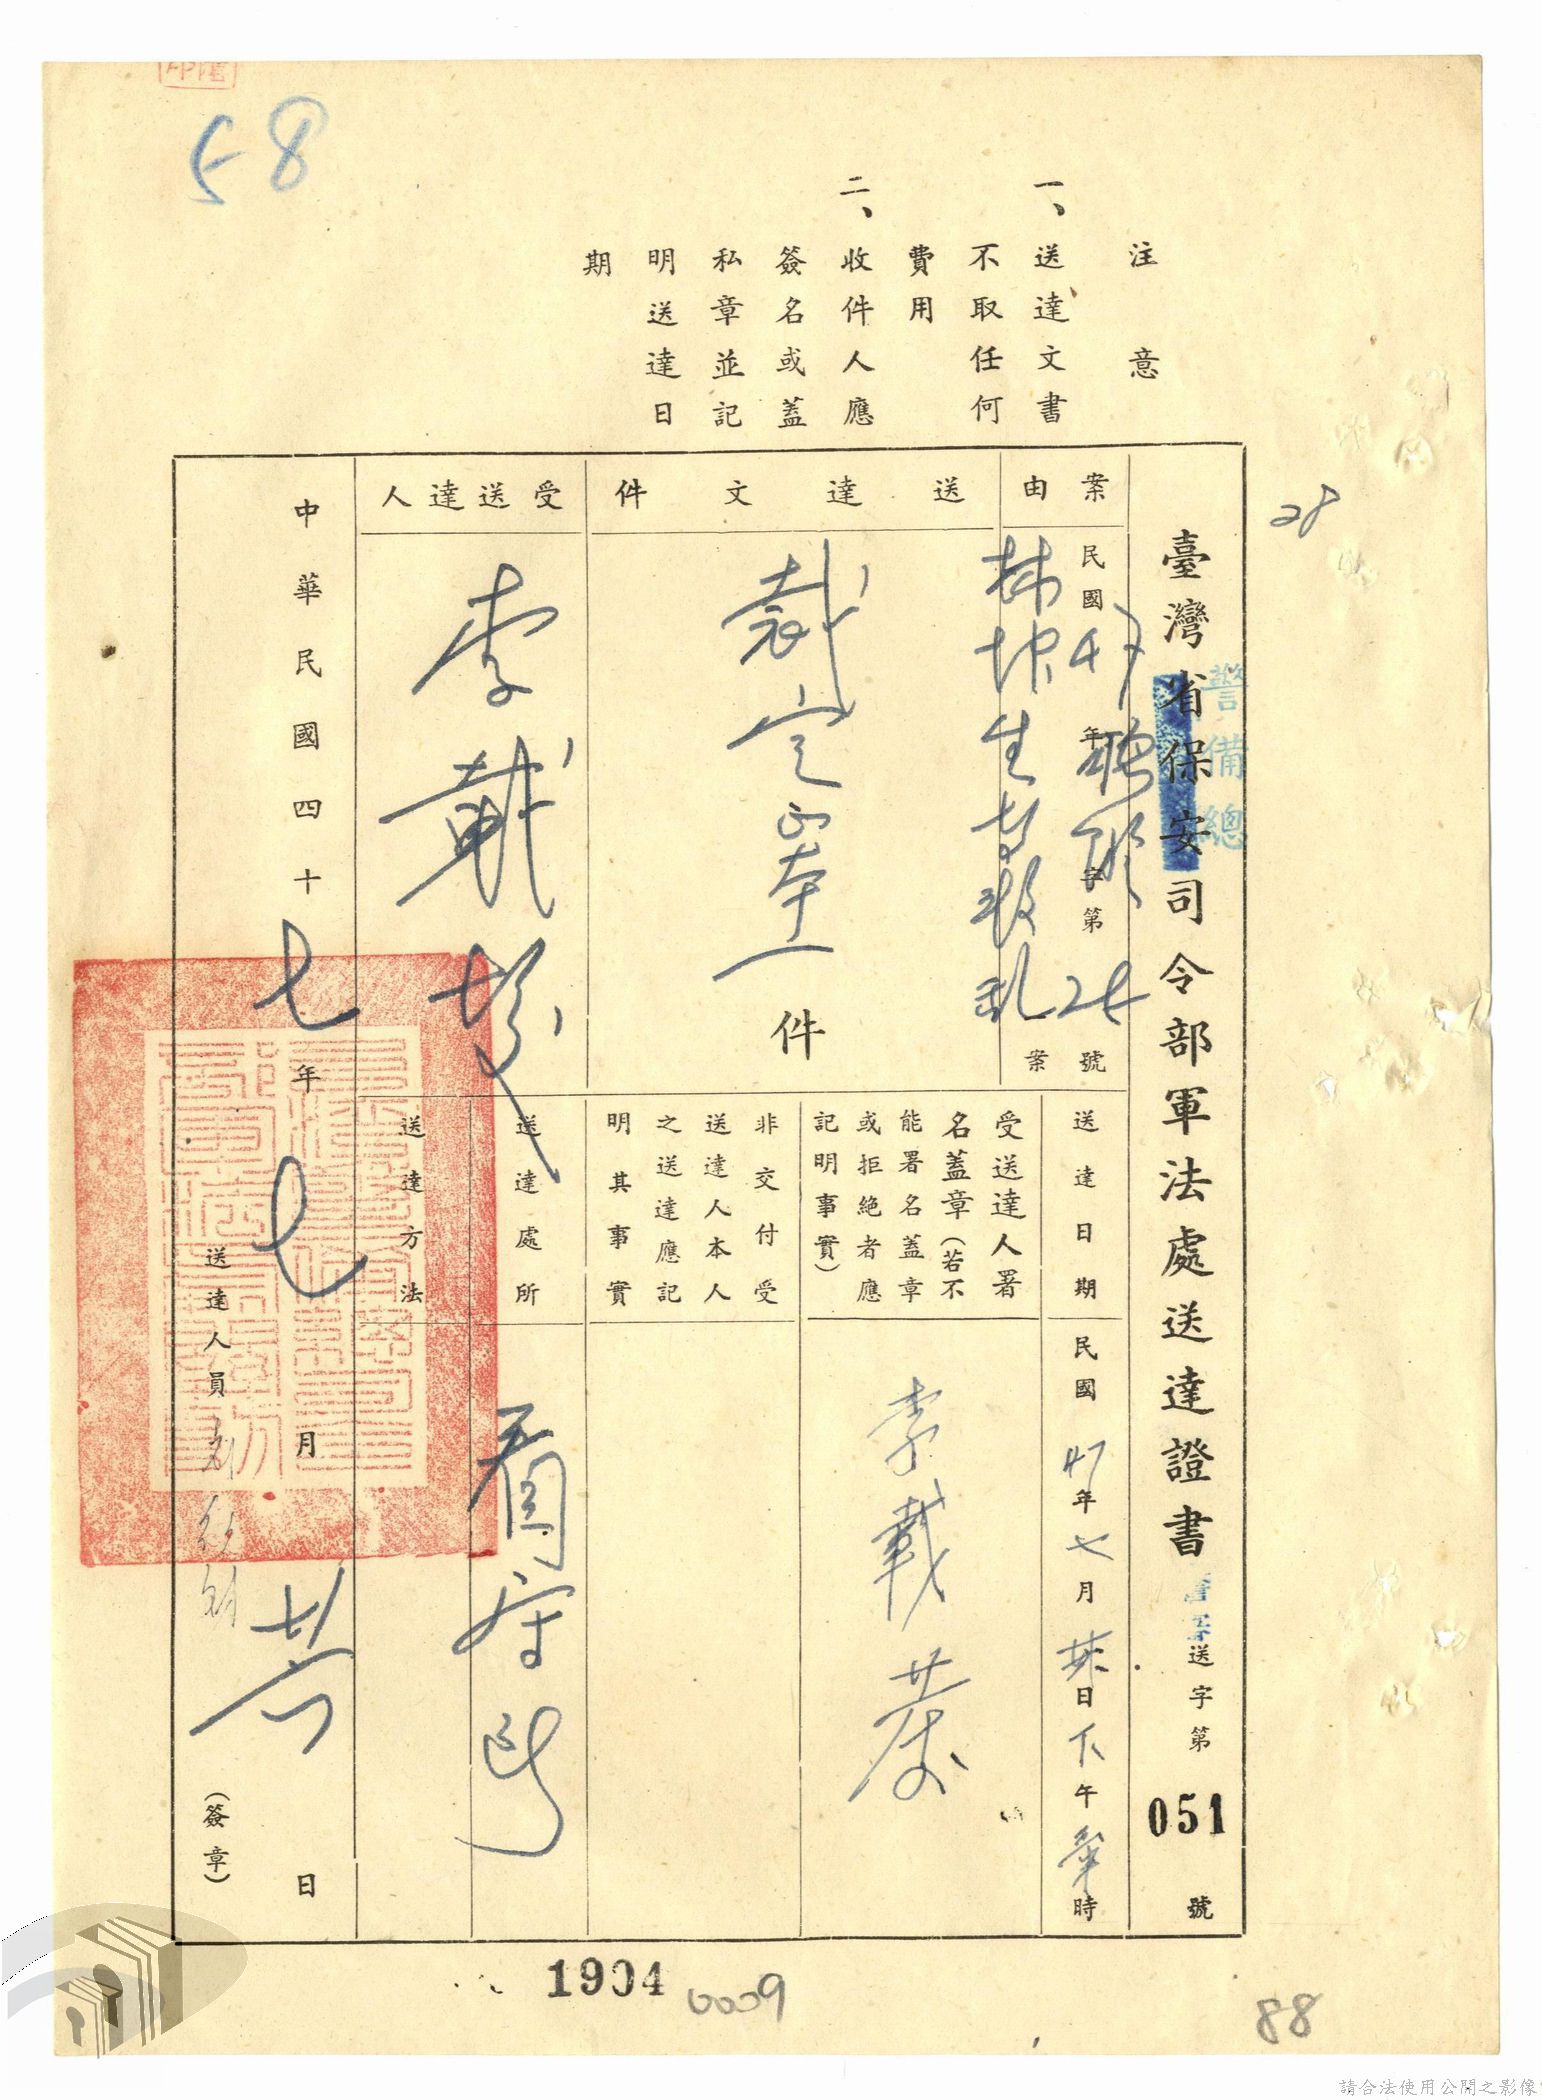 58
注意
一、送達文書
不取任何
費用
二、收件人應
簽名或蓋
私章並記
明送達日
期
28
臺灣省保安司令部軍法處送達證書
警備總
送字第051號
案由
民國47年 字第 號
生 叛亂案
送達文件
裁定正本一件
受送達人
李載
送達日期
民國47年七月 日下午 時
受送達人署
名蓋章(若不
能署名蓋章
或拒絕者應
記明事實)
李載
非交付受
送達人本人
之送達應記
明其事實
送達處所
看守所
送達方法
中華民國四十七年七月 日
送達人員
(簽章)
1904
0009
88
請合法使用公開之影像